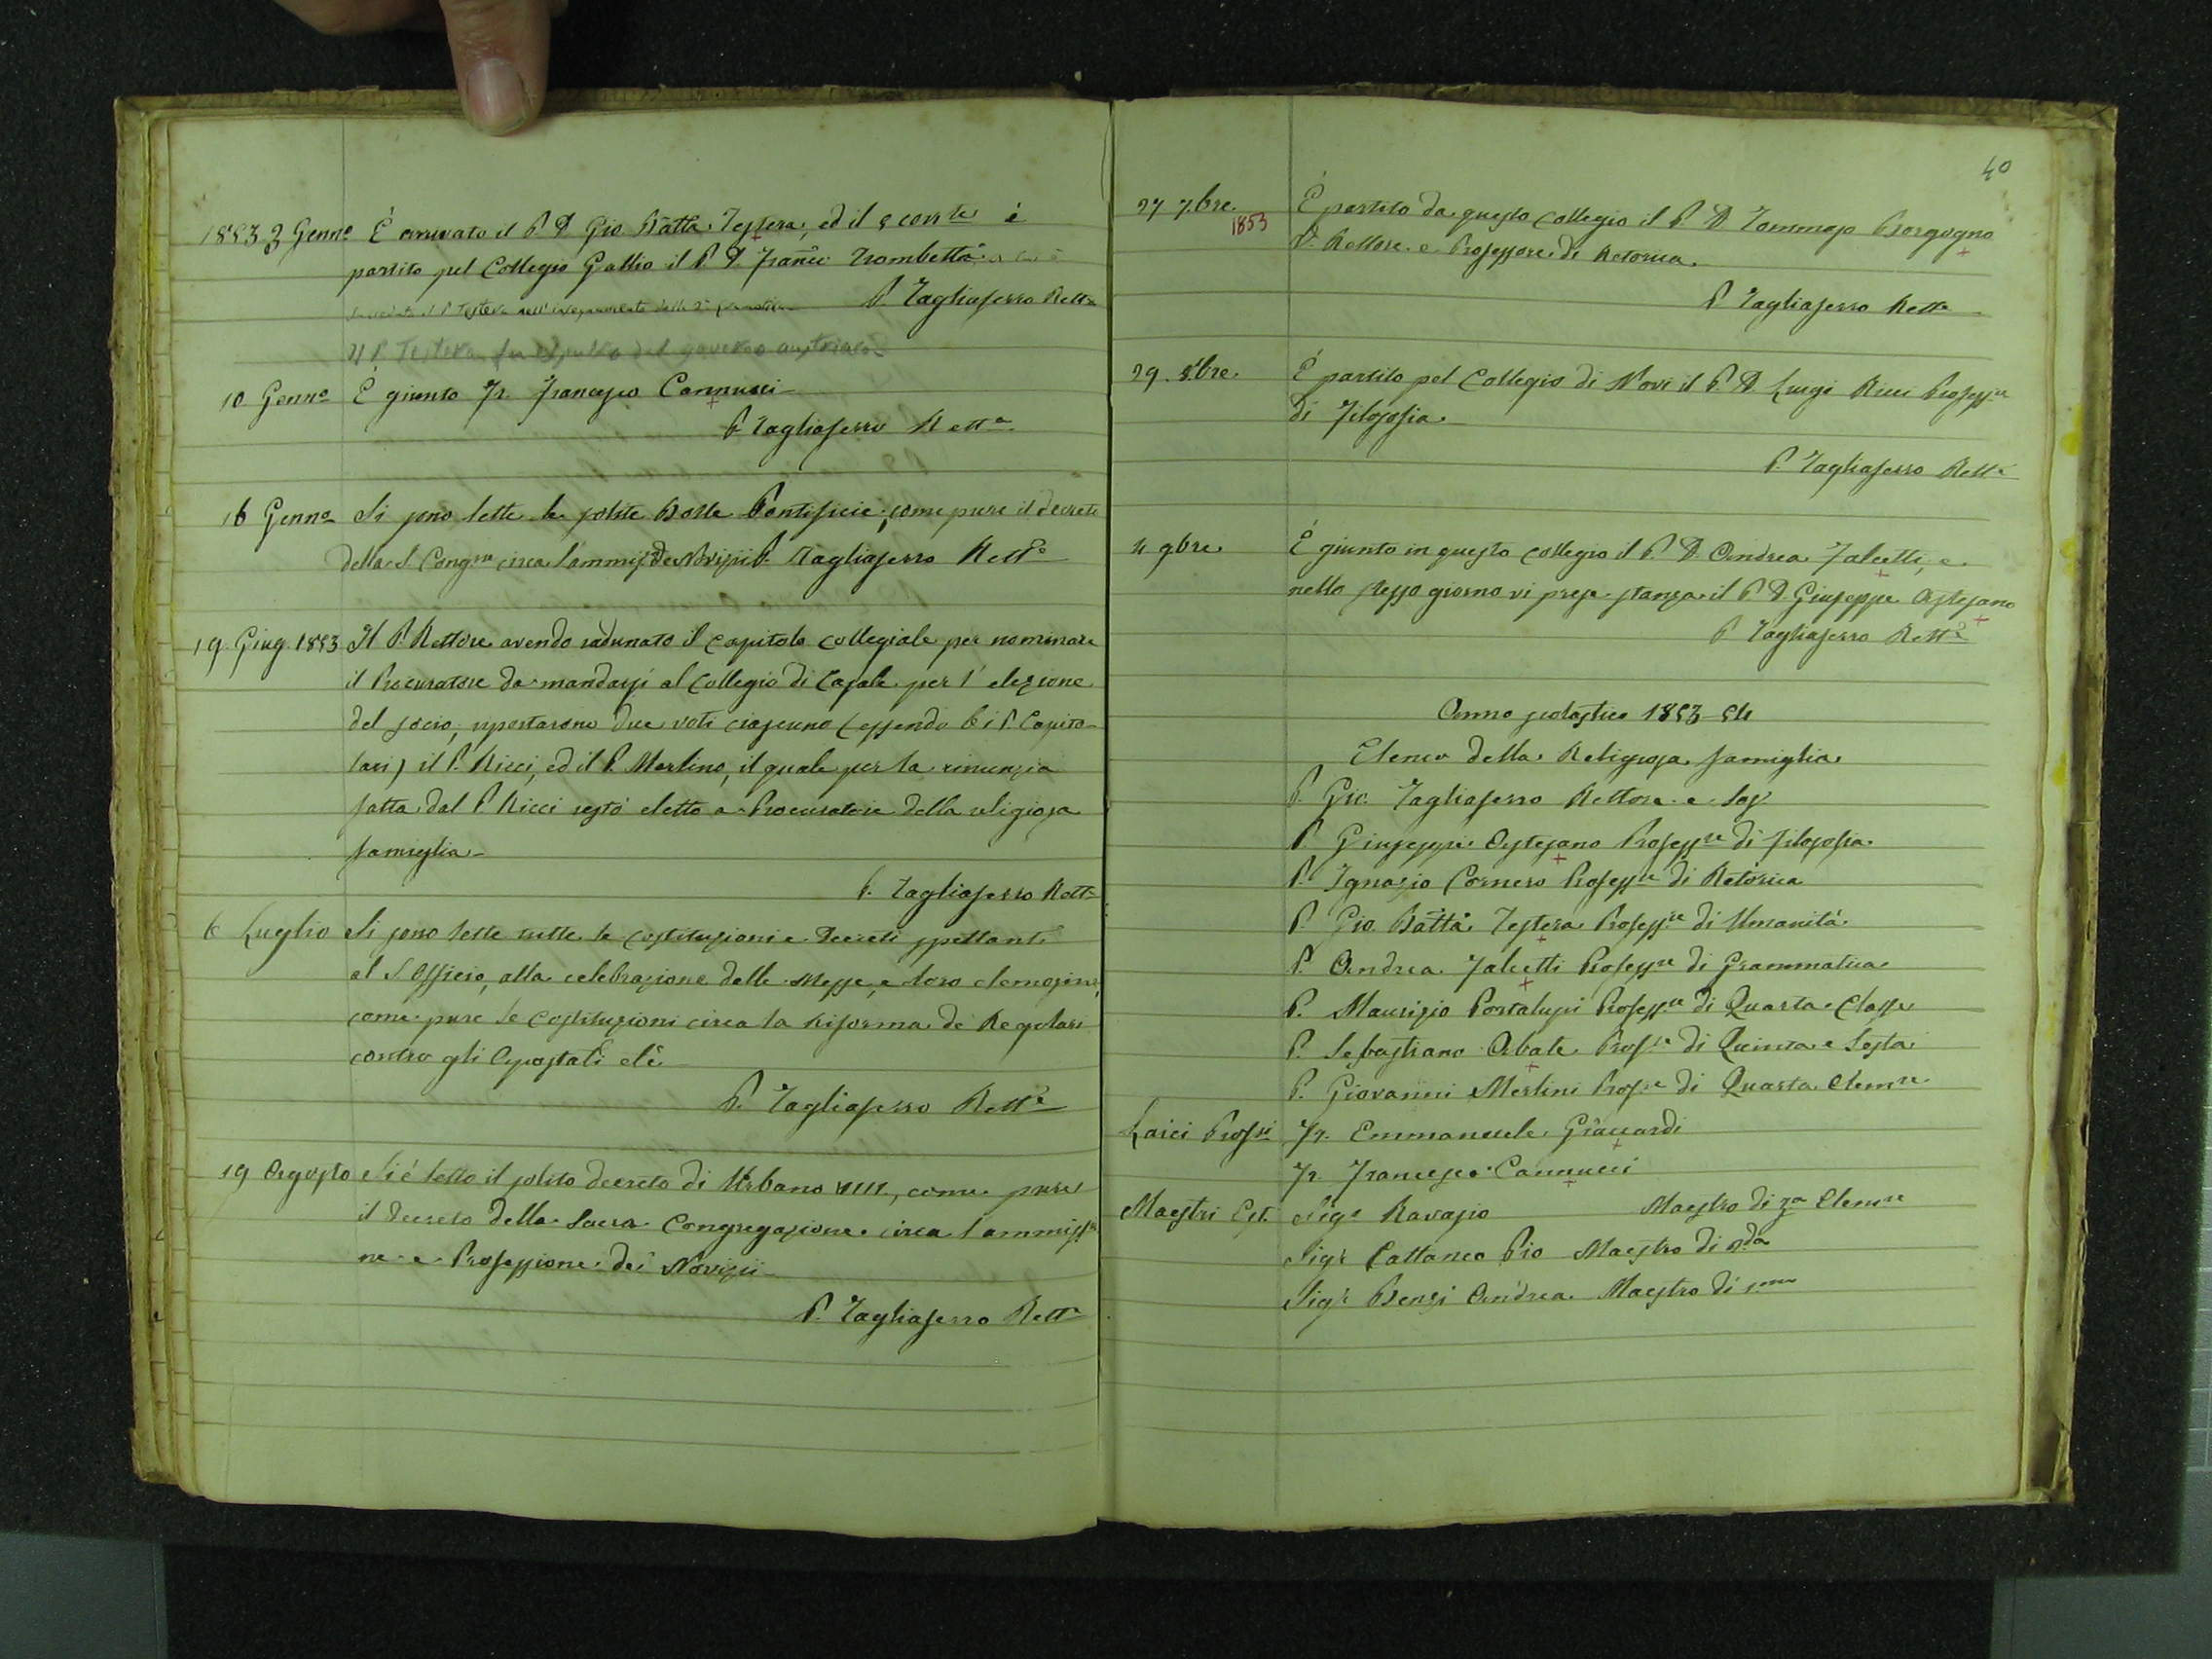 1853 3 Genn.o È arrivato il P. D. Gio. Batta. Testera, ed il 5 corr.te è
partito pel Collegio Gallio il P. D. Franc.o Trombetta a cui è
succeduto il P. Testera nell'insegnamento della 2a gramatica P. Tagliaferro Rett.e
Il P. Testera fu espulso dal governo austriaco
10 Genn.o È giunto Fr. Francesco Cannucci
P. Tagliaferro Rett.e
16 Genn.o Si sono lette le solite Bolle Pontificie, come pure il decreto
della S. Cong.ne circa l'ammis. de Novizii P. Tagliaferro Rett.e
19. Giug. 1853 Il P. Rettore avendo radunato il capitolo collegiale per nominare
il Procuratore da mandarsi al Collegio di Casale per l'elezione
del socio, riportarono due voti ciascuno (essendo 6 i P. Capito-
lari) il P. Ricci, ed il P. Merlino, il quale per la rinunzia
fatta dal P. Ricci restò eletto a Procuratore della religiosa
famiglia.
P. Tagliaferro Rett.e
6 Luglio Si sono lette tutte le costituzioni e Decreti spettanti
al S. Officio, alla celebrazione delle Messe, e loro elemosine,
come pure le Costituzioni circa la Riforma de' Regolari
contro gli Apostati etc
P. Tagliaferro Rett.e
19 Agosto Si è letto il solito decreto di Urbano VIII, come pure
il decreto della Sacra Congregazione circa l'ammissio
ne e Professione dei Novizii
P. Tagliaferro Rett.e
40
27 7.bre 1853 È partito da questo collegio il P. D. Tommaso Borgogno
V. Rettore e Professore di Retorica.
P. Tagliaferro Rett.e
29. 8.bre È partito pel Collegio di Novi il P. D. Luigi Ricci Profess.re
di Filosofia.
P. Tagliaferro Rett.e
4 9bre È giunto in questo collegio il P. D. Andrea Falcetti, e
nello stesso giorno vi prese stanza il P. D. Giuseppe Astesano
P. Tagliaferro Rett.e
Anno scolastico 1853-54
Elenco della Religiosa famiglia
P. Gio. Tagliaferro Rettore e
P. Giuseppe Astesano Profess.re di filosofia.
P. Ignazio Cornero Profess.re di Retorica
P. Gio. Batta. Testera Profess.re di Umanità.
P. Andrea Falcetti Profess.re di Grammatica
P. Maurizio Portalupi Profess.re di Quarta Classe
P. Sebastiano Abate Prof.re di Quinta e Sesta
P. Giovanni Merlini Prof.re di Quarta Elem.re
Laici Prof.si Fr. Emmanuele Giaccardi
Fr. Francesco Cannucci
Maestri Est. Sig.r Ravasio Maestro di 3.a Elem.re
Sig.r Cattaneo Pio Maestro di 2.da
Sig.r Benzi Andrea Maestro di